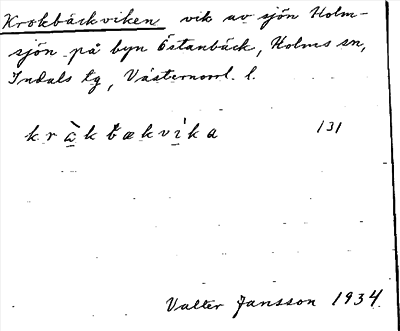 Krokbäckviken vik av sjön Holm-
sjön på byn Östanbäck, Holms sn,
Indals tg, Västernorrl. l.
kròkbækvika 131
Valter Jansson 1934.